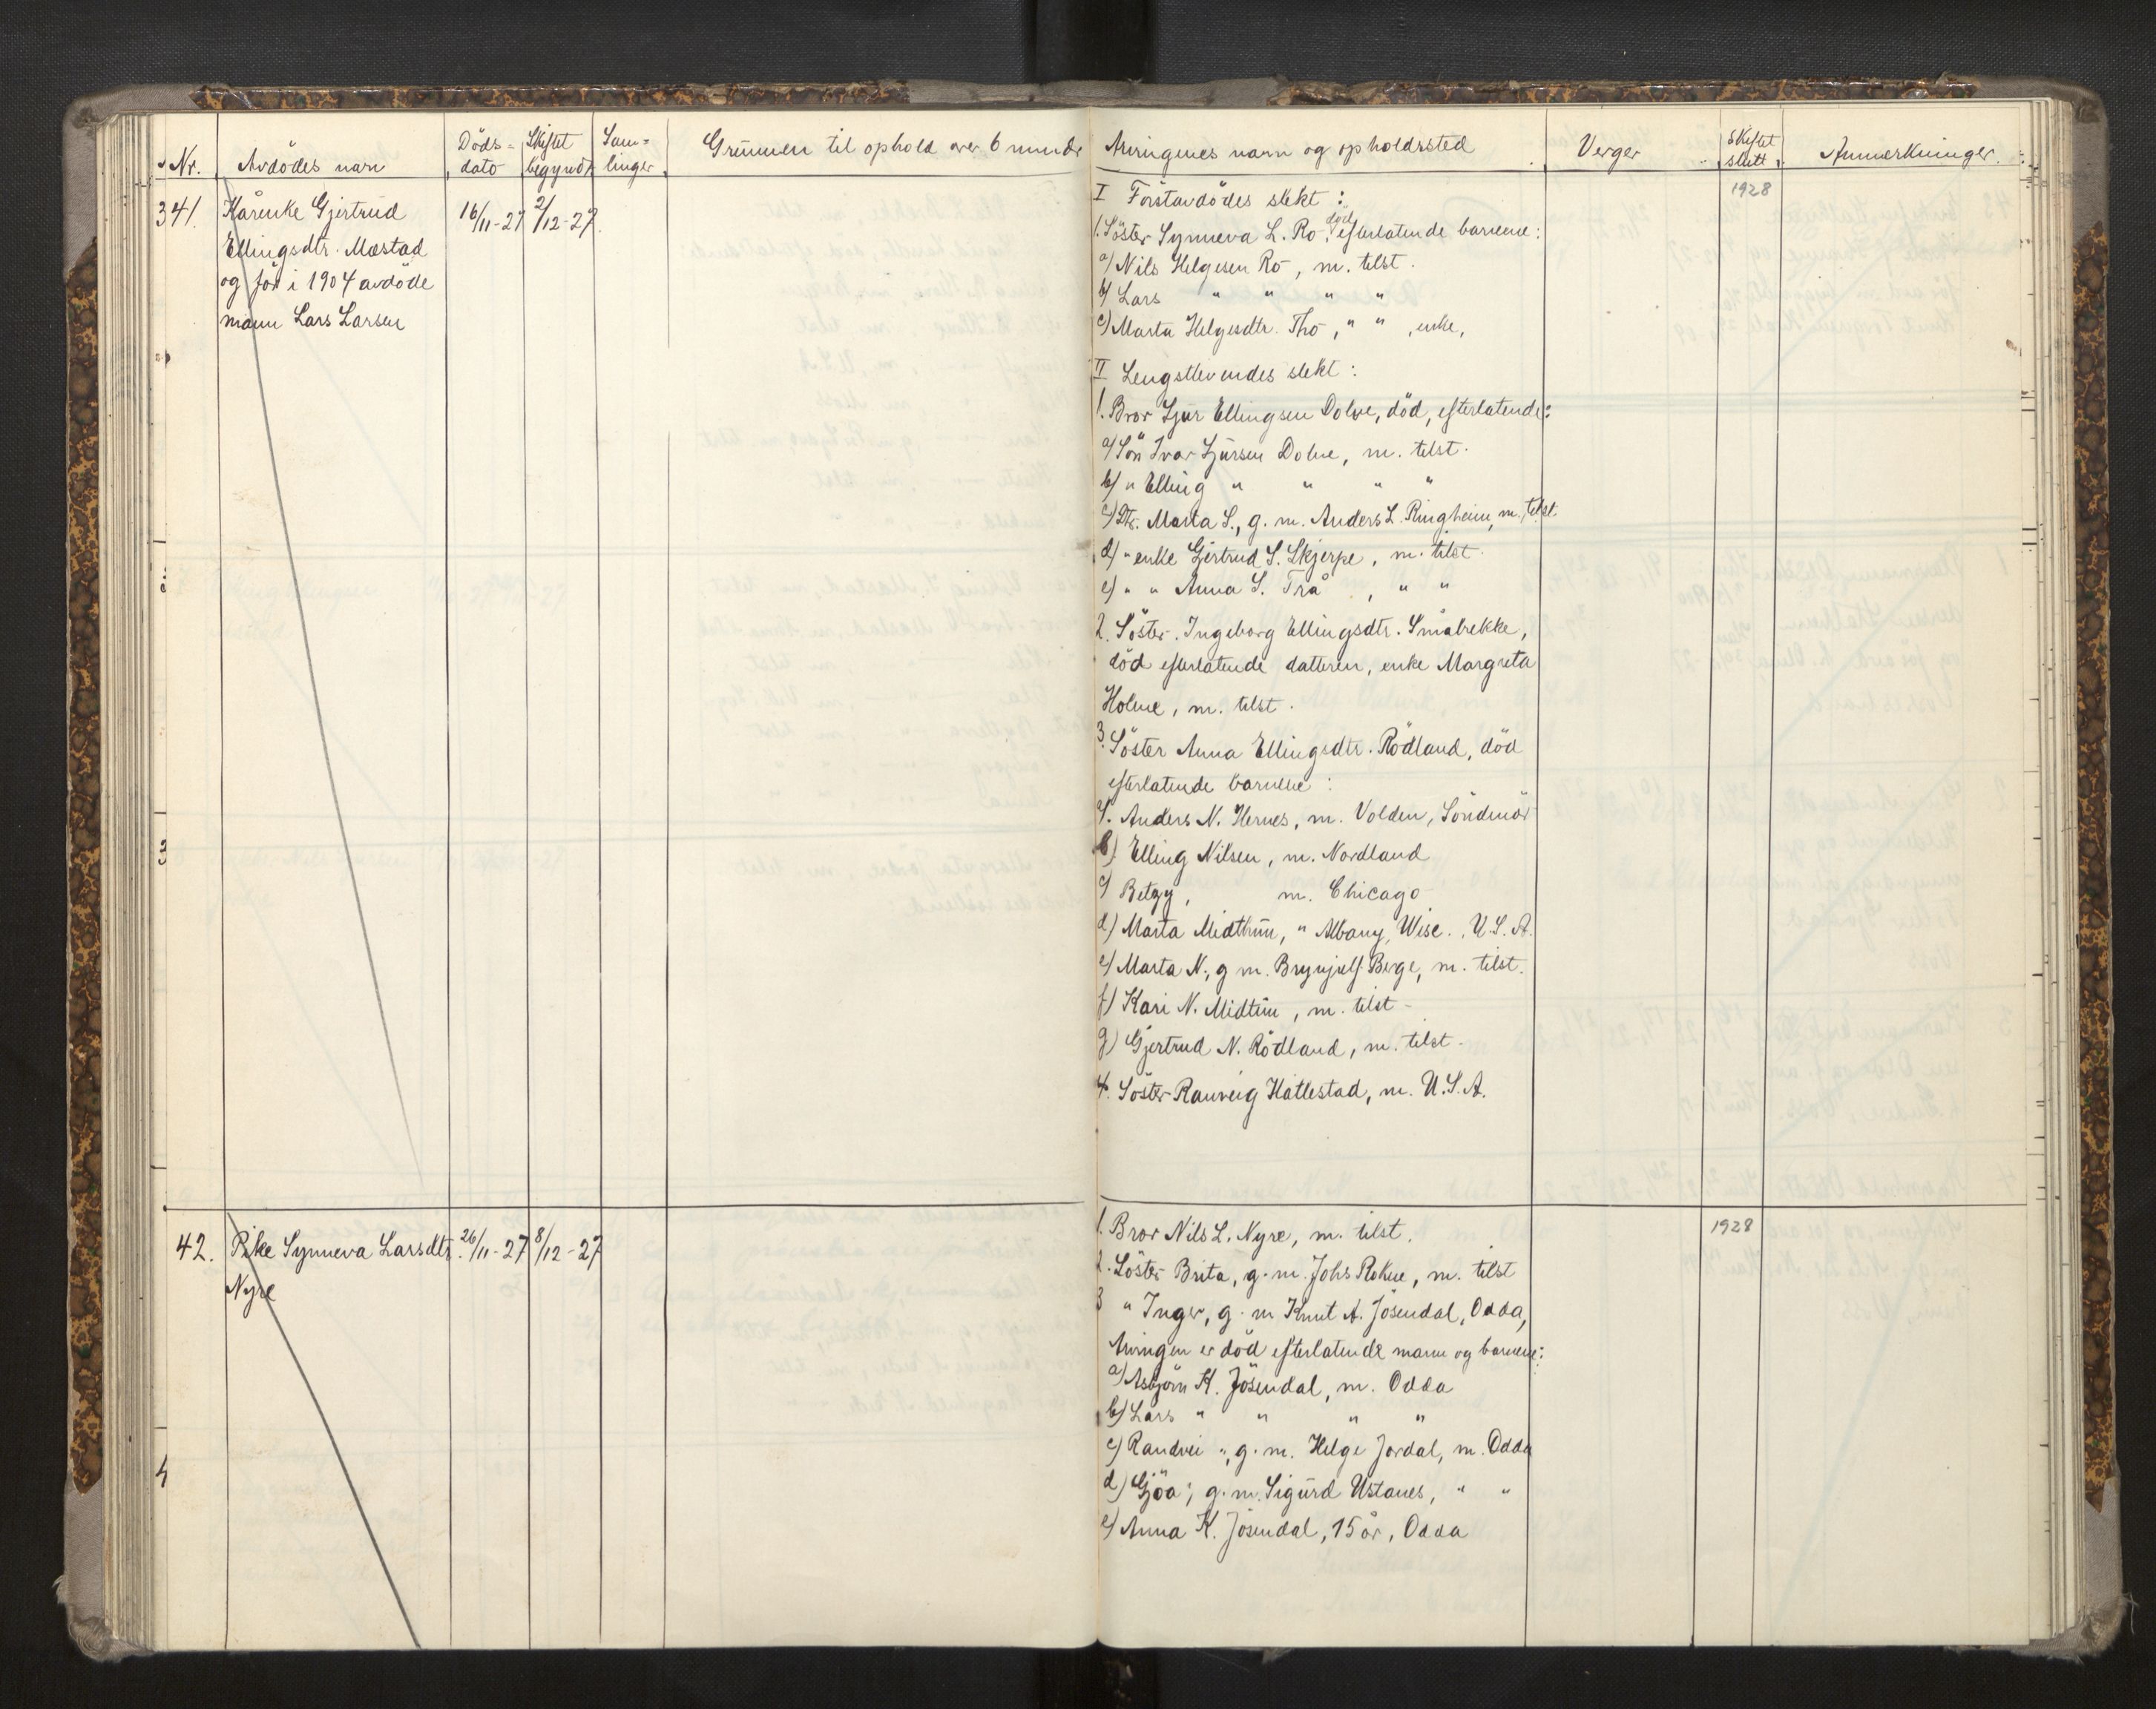 Nr. Avdödes navn Döds- dato Skiftet begyndt Sam- linger Grunnen til ophold over 6 mndr Arvingenes navn og opholdssted Verger Skiftet slutt Anmerkninger.
341. Kårenke Gjertrud 16/11-27 2/12-27
Ellingsdtr. Mæstad
og för i 1904 avdöde
mann Lars Larsen
I Förstavdödes slekt: 1928
1. Söster Synneva L. Ro, död, efterlatende barnene:
a) Nils Helgesen Ro, m. tilst.
b) Lars " " " "
c) Marta Helgesdtr. Tho, " " , enke,
II Lengstlevendes slekt:
1. Bror Sjur Ellingsen Dolve, död, efterlatende:
a) Sön Ivar Sjursen Dolve, m. tilst.
b) " Elling " " " "
c) Dtr. Marta S., g. m. Anders L. Ringheim, m. tilst.
d) " enke Gjertrud S. Skjerpe, m. tilst.
e) " " Anna S. Trå , " "
2. Söster. Ingeborg Ellingsdtr. Småbrekke,
död efterlatende datteren, enke Margreta
Holme, m. tilst.
3. Söster Anna Ellingsdtr. Rödland, död
efterlatende barnene:
a). Anders N. Hernes, m. Volden, Söndmör
b) Elling Nilsen, m. Nordland
c) Betzy, m. Chicago
d) Marta Midthun, " Albany, Wisc., U.S.A.
e) Marta N., g m. Brynjulf Berge, m. tilst.
f) Kari N. Midtun, m. tilst
g) Gjertrud N. Rödland, m. tilst.
4. Söster Ranveig Hatlestad, m. U.S.A.
42. Pike Synneva Larsdtr. 26/11-27 8/12-27
Nyre
1. Bror Nils L. Nyre, m. tilst. 1928
2. Söster Brita, g. m. Johs Rokne, m. tilst
3 " Inger, g. m Knut A. Jösendal, Odda,
Arvingen er död efterlatende mann og barnene:
a) Asbjörn K. Jösendal, m. Odda
b) Lars " " " "
c) Randvei ", g. m. Helge Jordal, m. Odda
d) Gjöa ", g. m. Sigurd Ustanes, " "
e) Anna K. Jösendal, 15 år, Odda